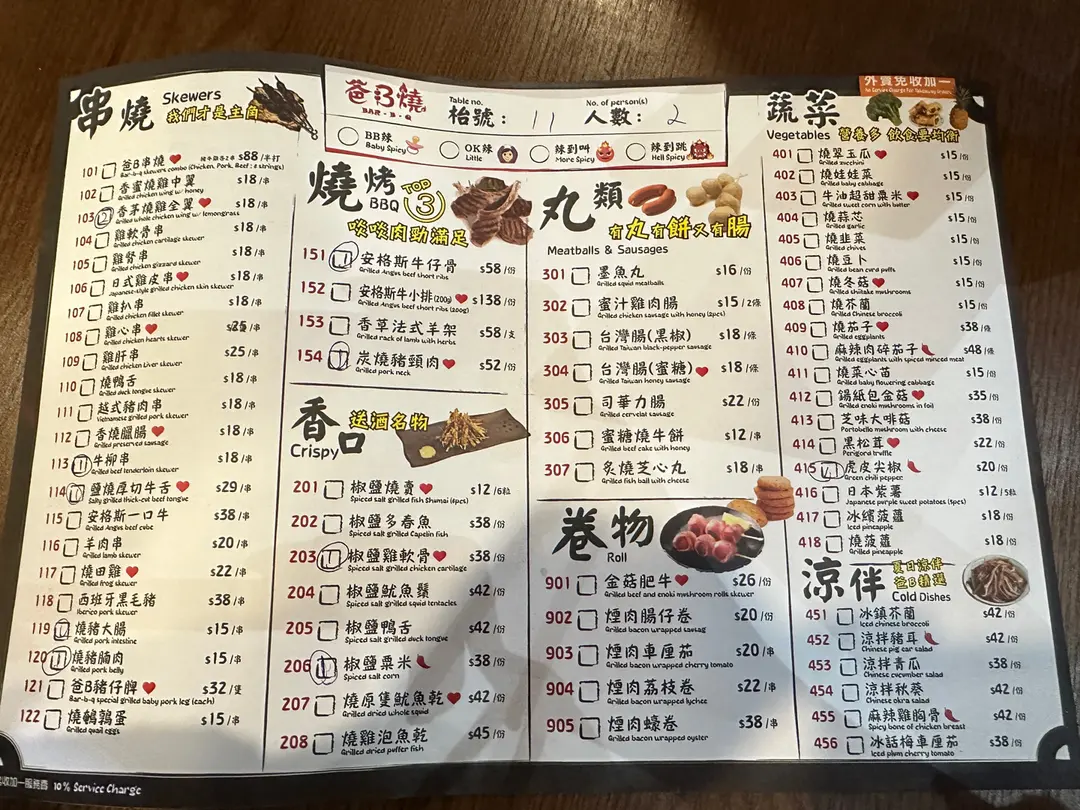 串燒 Skewers
我們才是主角
101 爸B串燒 $88/半打
Bar-b-q skewers combo (Chicken, Pork, Beef : 6 strings)
102 香蜜燒雞中翼 $18/串
Grilled chicken wing w/ honey
103 香茅燒雞全翼 $18/串
Grilled whole chicken wing w/ lemongrass
104 雞軟骨串 $18/串
Grilled chicken cartilage skewer
105 雞腎串 $18/串
Grilled chicken gizzard skewer
106 日式雞皮串 $18/串
Japanese-style grilled chicken skin skewer
107 雞扒串 $18/串
Grilled chicken fillet skewer
108 雞心串 /串
Grilled chicken hearts skewer
109 雞肝串 $25/串
Grilled chicken Liver skewer
110 燒鴨舌 $18/串
Grilled duck tongue skewer
111 越式豬肉串 $18/串
Vietnamese grilled pork skewer
112 香燒臘腸 $18/串
Grilled preserved sausage
113 牛柳串 $18/串
Grilled beef tenderloin skewer
114 鹽燒厚切牛舌 $29/串
Salty grilled thick-cut beef tongue
115 安格斯一口牛 $38/串
Grilled Angus beef cube
116 羊肉串 $20/串
Grilled lamb skewer
117 燒田雞 $22/串
Grilled frog skewer
118 西班牙黑毛豬 $38/串
Iberico pork skewer
119 燒豬大腸 $15/串
Grilled pork intestine
120 燒豬腩肉 $15/串
Grilled pork belly
121 爸B豬仔脾 $32/隻
Bar-b-q special grilled baby pork leg (each)
122 燒鵪鶉蛋 $15/串
Grilled quail eggs
10% Service Charge
爸B燒
BAR·B·Q
Table no. No. of person(s)
枱號： 11 人數： 2
BB辣 Baby Spicy
OK辣 Little
辣到叫 More Spicy
辣到跳 Hell Spicy
燒烤 BBQ
TOP 3
啖啖肉勁滿足
151 安格斯牛仔骨 $58/份
Grilled Angus beef short ribs
152 安格斯牛小排(200g) $138/份
Grilled Angus beef short ribs (200g)
153 香草法式羊架 $58/支
Grilled rack of lamb with herbs
154 炭燒豬頸肉 $52/份
Grilled pork neck
香口 Crispy
送酒名物
201 椒鹽燒賣 $12/6粒
Spiced salt grilled fish Shumai (6pcs)
202 椒鹽多春魚 $38/份
Spiced salt grilled Capelin fish
203 椒鹽雞軟骨 $38/份
Spiced salt grilled chicken cartilage
204 椒鹽魷魚鬚 $42/份
Spiced salt grilled squid tentacles
205 椒鹽鴨舌 $42/份
Spiced salt grilled duck tongue
206 椒鹽粟米 $38/份
Spiced salt corn
207 燒原隻魷魚乾 $42/份
Grilled dried whole squid
208 燒雞泡魚乾 $45/份
Grilled dried puffer fish
丸類
有丸有餅又有腸
Meatballs & Sausages
301 墨魚丸 $16/份
Grilled squid meatballs
302 蜜汁雞肉腸 $15/2條
Grilled chicken sausage with honey (2pcs)
303 台灣腸(黑椒) $18/條
Grilled Taiwan black-pepper sausage
304 台灣腸(蜜糖) $18/條
Grilled Taiwan honey sausage
305 司華力腸 $22/份
Grilled cervelat sausage
306 蜜糖燒牛餅 $12/串
Grilled beef cake with honey
307 炙燒芝心丸 $18/串
Grilled fish ball with cheese
卷物
Roll
901 金菇肥牛 $26/份
Grilled beef and enoki mushroom rolls skewer
902 煙肉腸仔卷 $20/份
Grilled bacon wrapped sausag
903 煙肉車厘茄 $20/串
Grilled bacon wrapped cherry tomato
904 煙肉荔枝卷 $22/串
Grilled bacon wrapped lychee
905 煙肉蠔卷 $38/串
Grilled bacon wrapped oyster
外賣免收加一
No Service Charge For Takeaway Orders
蔬菜
Vegetables 營養多 飲食要均衡
401 燒翠玉瓜 $15/份
Grilled zucchini
402 燒娃娃菜 $15/份
Grilled baby cabbage
403 牛油超甜粟米 $15/份
Grilled sweet corn with butter
404 燒蒜芯 $15/份
Grilled garlic
405 燒韭菜 $15/份
Grilled chives
406 燒豆卜 $15/份
Grilled bean curd puffs
407 燒冬菇 $15/份
Grilled shiitake mushrooms
408 燒芥蘭 $15/份
Grilled Chinese broccoli
409 燒茄子 $38/條
Grilled eggplants
410 麻辣肉碎茄子 $48/條
Grilled eggplants with spiced minced meat
411 燒菜心苗 $15/份
Grilled baby flowering cabbage
412 錫紙包金菇 $35/份
Grilled enoki mushrooms in foil
413 芝味大啡菇 $38/份
Portobello mushroom with cheese
414 黑松茸 $22/份
Perigord truffle
415 虎皮尖椒 $20/份
Green chili pepper
416 日本紫薯 $12/5粒
Japanese purple sweet potatoes (5pcs)
417 冰繽菠蘿 $18/份
Iced pineapple
418 燒菠蘿 $18/份
Grilled pineapple
涼伴
夏日涼伴
爸B精選
Cold Dishes
451 冰鎮芥蘭 $42/份
Iced chinese broccoli
452 涼拌豬耳 $42/份
Chinese pig ear salad
453 涼拌青瓜 $38/份
Chinese cucumber salad
454 涼拌秋葵 $42/份
Chinese okra salad
455 麻辣雞胸骨 $42/份
Spicy bone of chicken breast
456 冰話梅車厘茄 $38/份
Iced plum cherry tomato